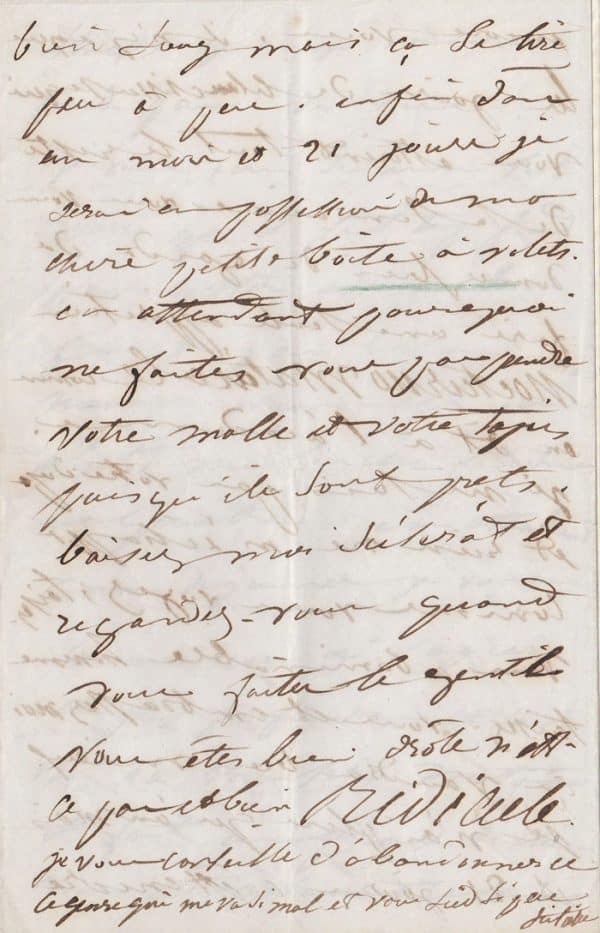 bien long mais ça se tire
peu à peu. enfin donc
un mois et 21 jours je
serai en possession de ma
chère petite boîte à volets.
en attendant pourquoi
ne faites vous pas prendre
votre malle et votre tapis
puisqu'ils sont prets.
baisez moi scélérat et
regardez-vous quand
vous faites le gentil
vous êtes bien drôle n'est-
ce pas et bien Ridicule.
je vous conseille d'abandonner ce
ce genre qui me va si mal et vous sied si peu